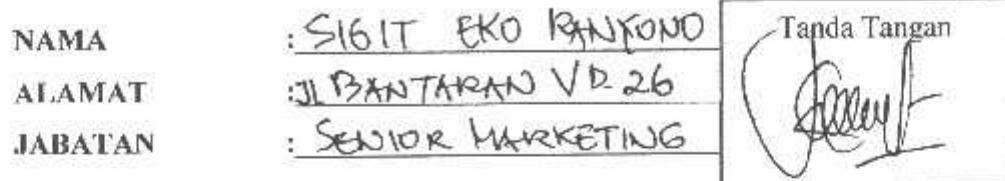 NAMA : SIGIT EKO RANYONO
ALAMAT : JL BANTARAN V D. 26
JABATAN : SENIOR MARKETING
Tanda Tangan